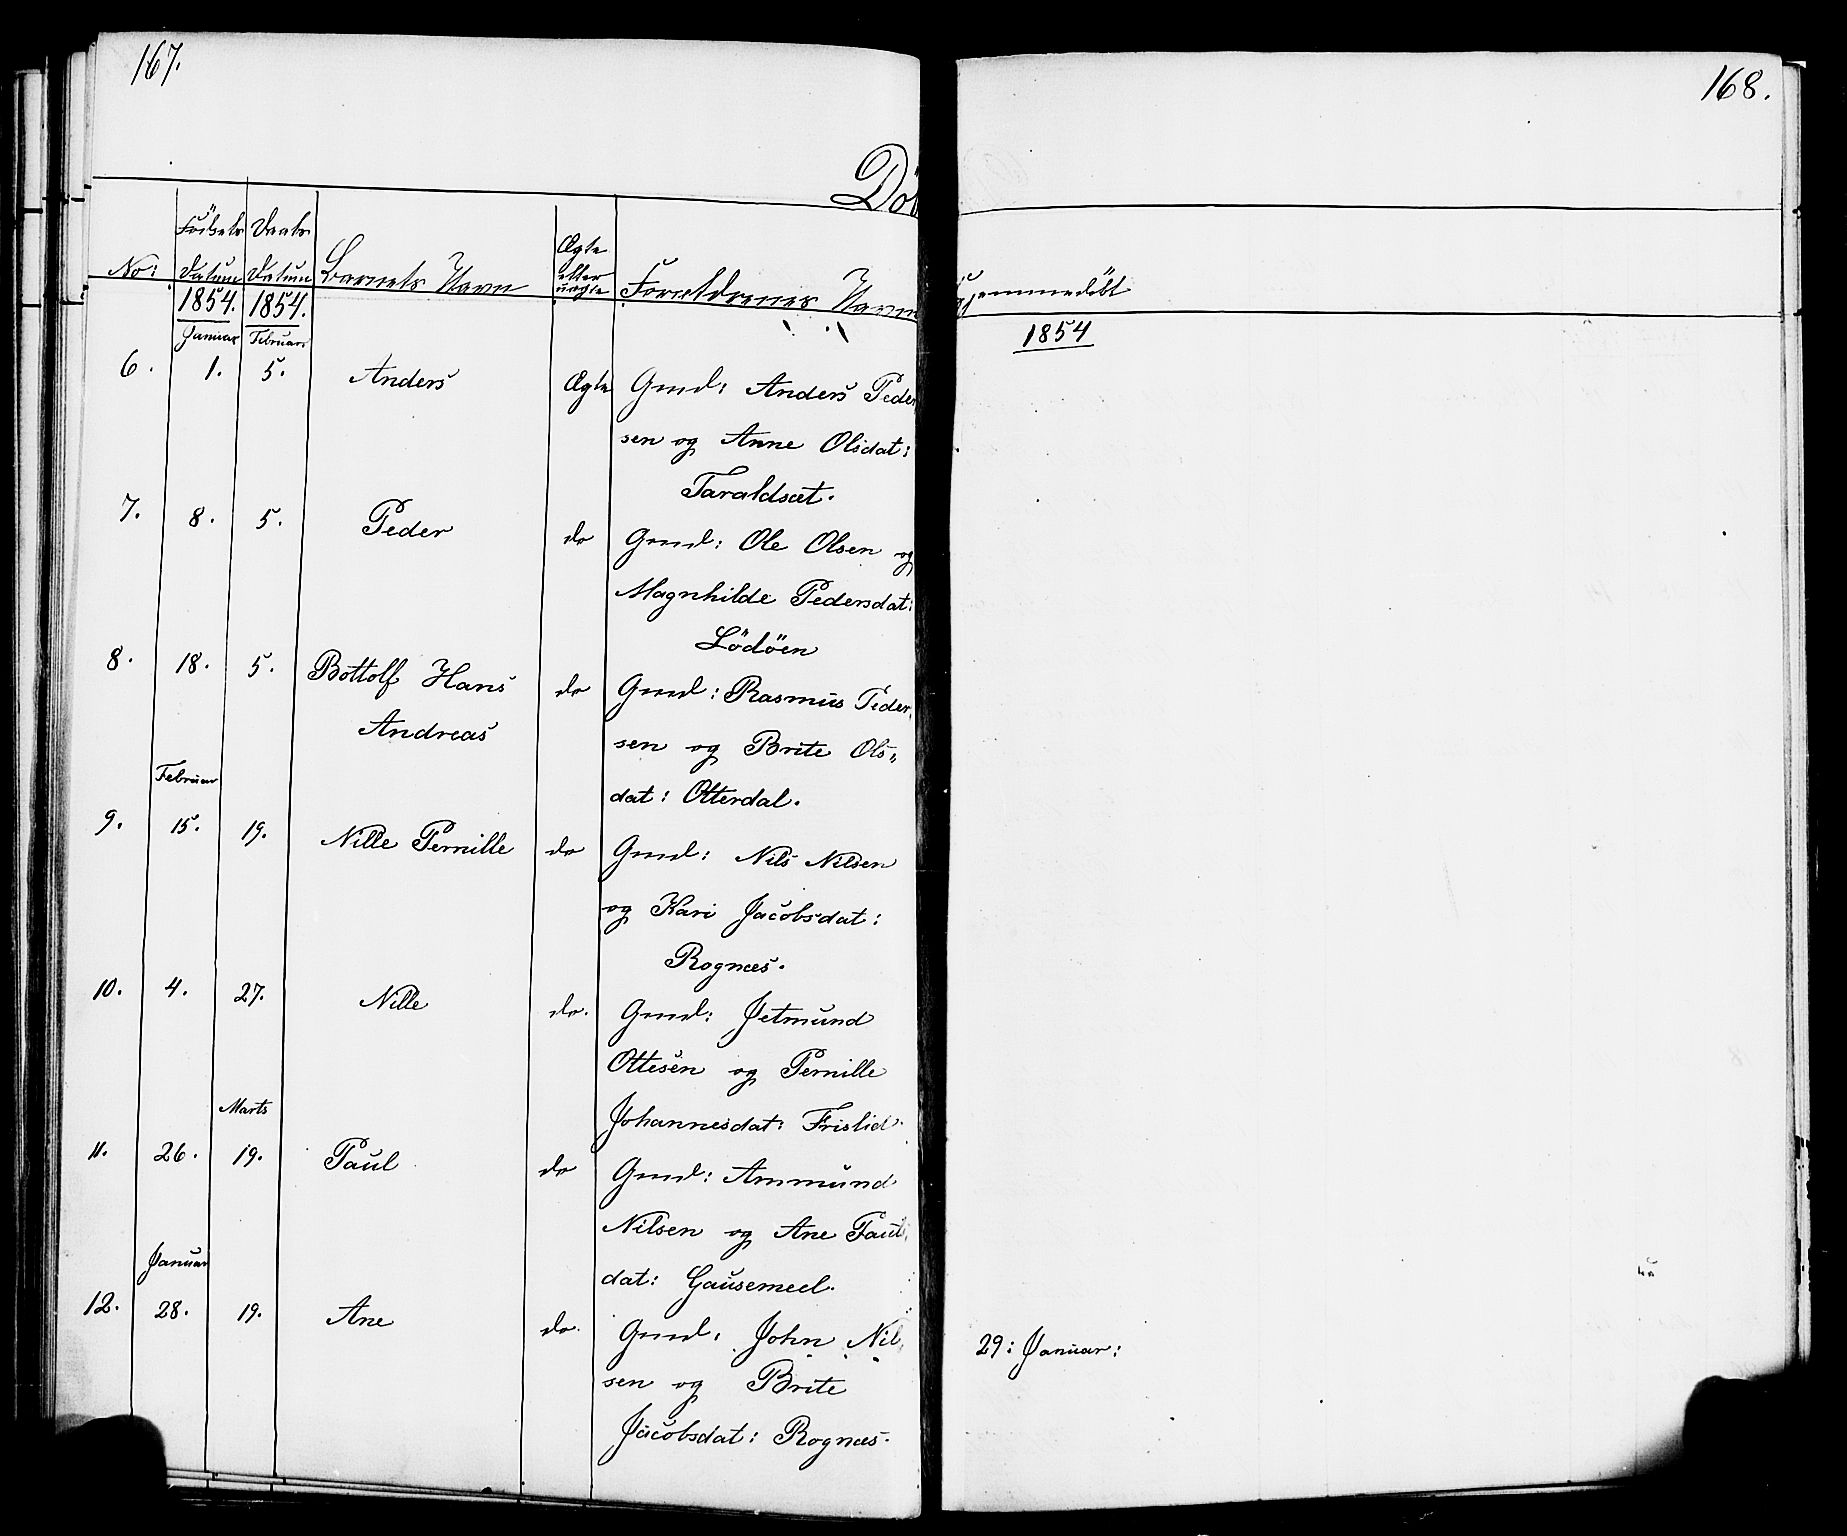 167.
Dö
No:
Födsels Datum
Daabs Datum
Barnets Navn
Ægte eller uægte
Forældrenes Navn
1854. 1854.
Januar Februar
6. 1. 5. Anders Ægte Gmd: Anders Peder
sen og Anne Olsdat:
Taraldsæt.
7. 8. 5. Peder do Gmd: Ole Olsen og
Magnhilde Pedersdat:
Lödöen
8. 18. 5. Bottolf Hans do Gmd: Rasmus Peder
Andreas sen og Brite Ols„
dat: Otterdal.
Februar
9. 15. 19. Nille Pernille do Gmd: Nils Nilsen
og Kari Jacobsdat:
Rognæs.
10. 4. 27. Nille do. Gmd: Jetmund
Ottesen og Pernille
Johannesdat: Frislid
Marts
11. 26. 19. Paul do Gmd: Ammund
Nilsen og Ane Pauls
dat: Gausemeel.
Januar
12. 28. 19. Ane do. Gmd: John Nil
sen og Brite
Jacobsdat: Rognæs.
168.
Hjemmedöbt
1854
29: Januar: